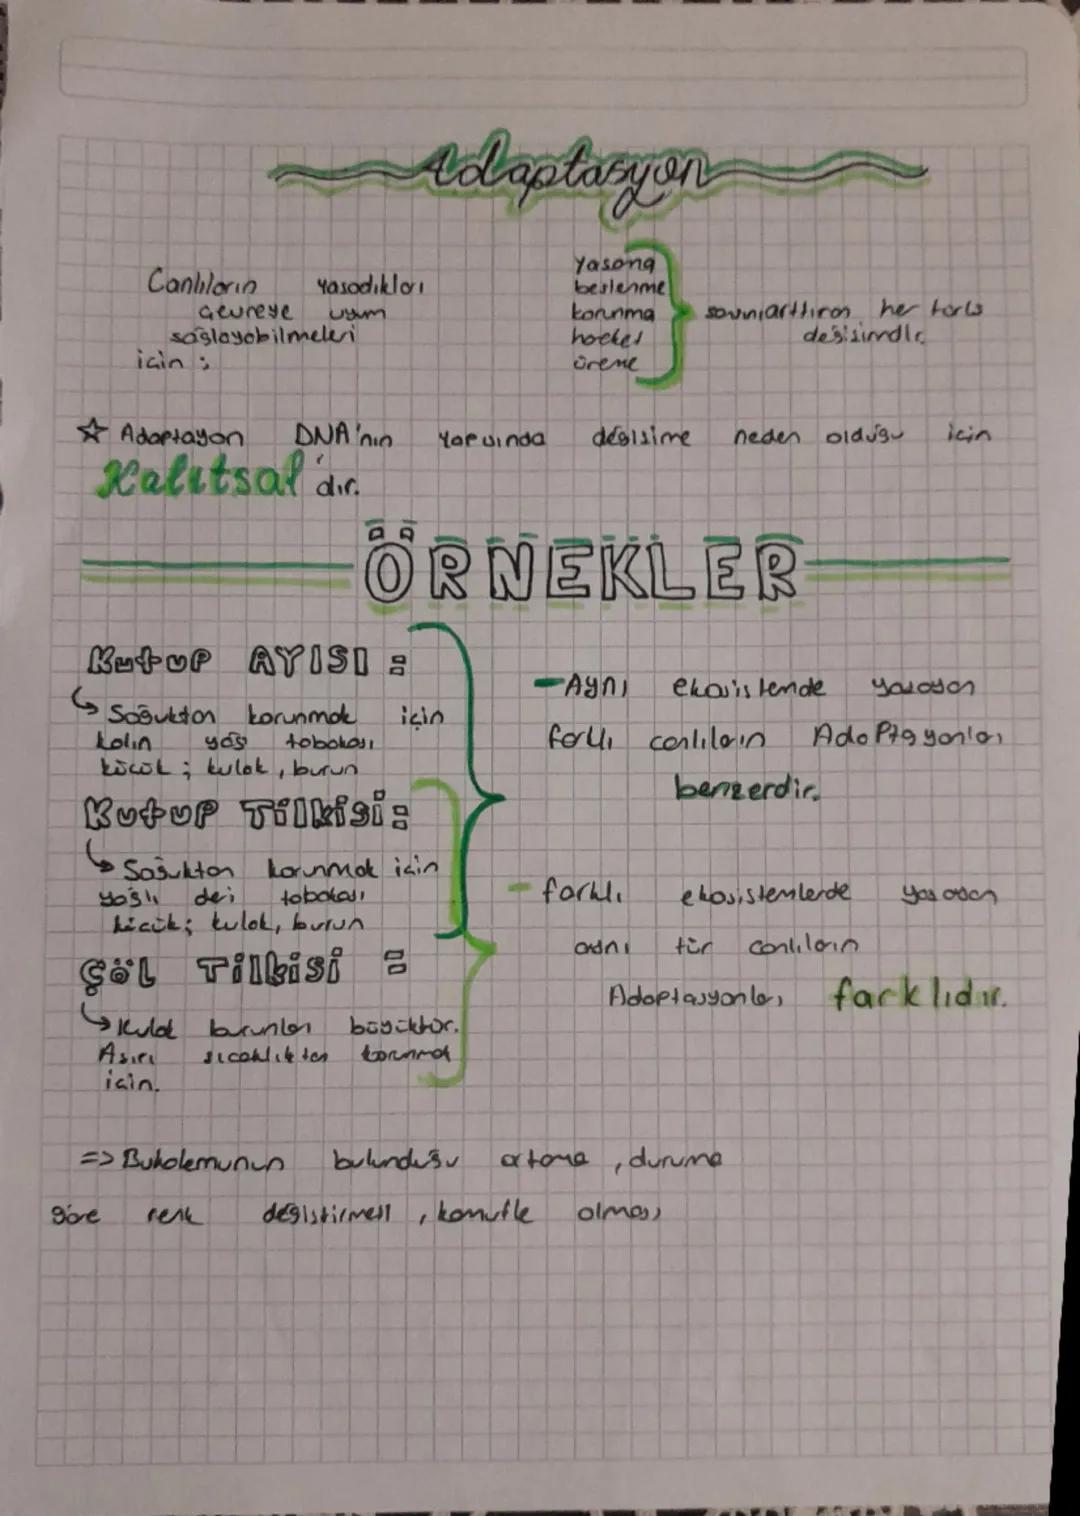 Adaptasyon
Canlıların yaşadıkları
çevreye uyum
sağlayabilmeleri
için ;
Yaşama
beslenme
korunma
üreme
her türlü
değişimdir.
☆ Adaptayon DNA'nın yapısında değişime neden olduğu için
Kalıtsal'dır.
ÖRNEKLER
Kutup AYISI :
↳ Soğuktan korunmak için
kalın yağ tabakası
küçük ; kulak , burun
Kutup Tilkisi :
↳ Soğuktan korunmak için
yağlı deri tabakası
küçük ; kulak, burun
Çöl Tilkisi :
↳ Kulak burunları büyüktür.
Aşırı sıcaklıktan korunmak
için.
- Aynı ekosistemde yaşayan
farklı canlıların Adaptasyonları
benzerdir.
- farklı ekosistemlerde yaşayan
aynı tür canlıların
Adaptasyonları farklıdır.
=> Bukalemunun bulunduğu ortama , duruma
göre renk değiştirmesi , kamufle olması